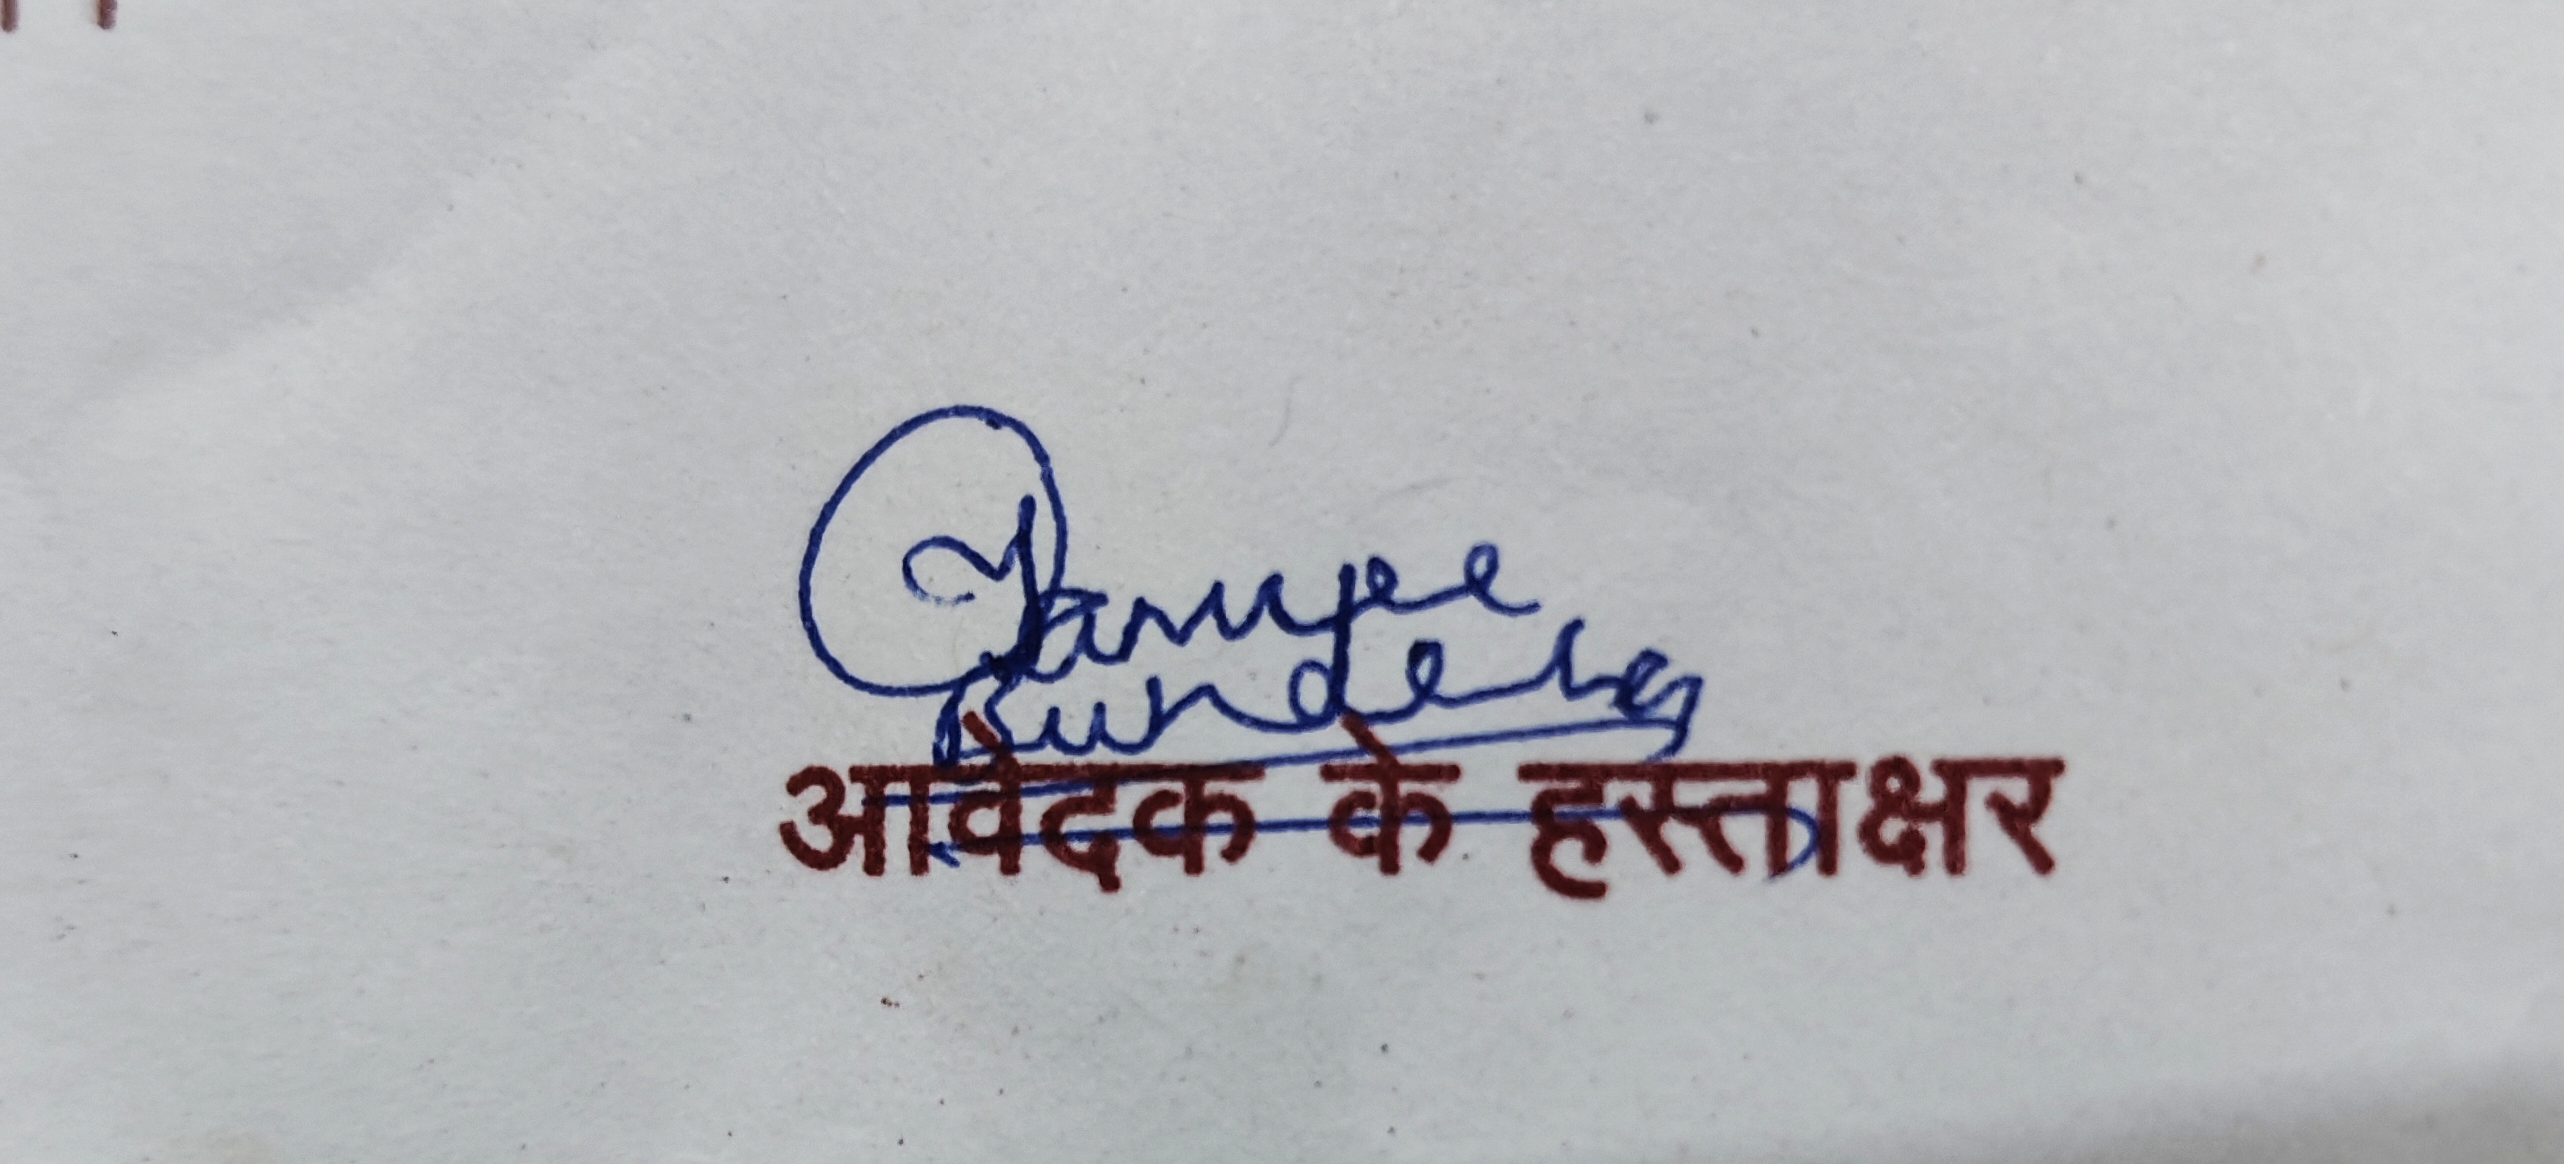 Bundela
आवेदक के हस्ताक्षर